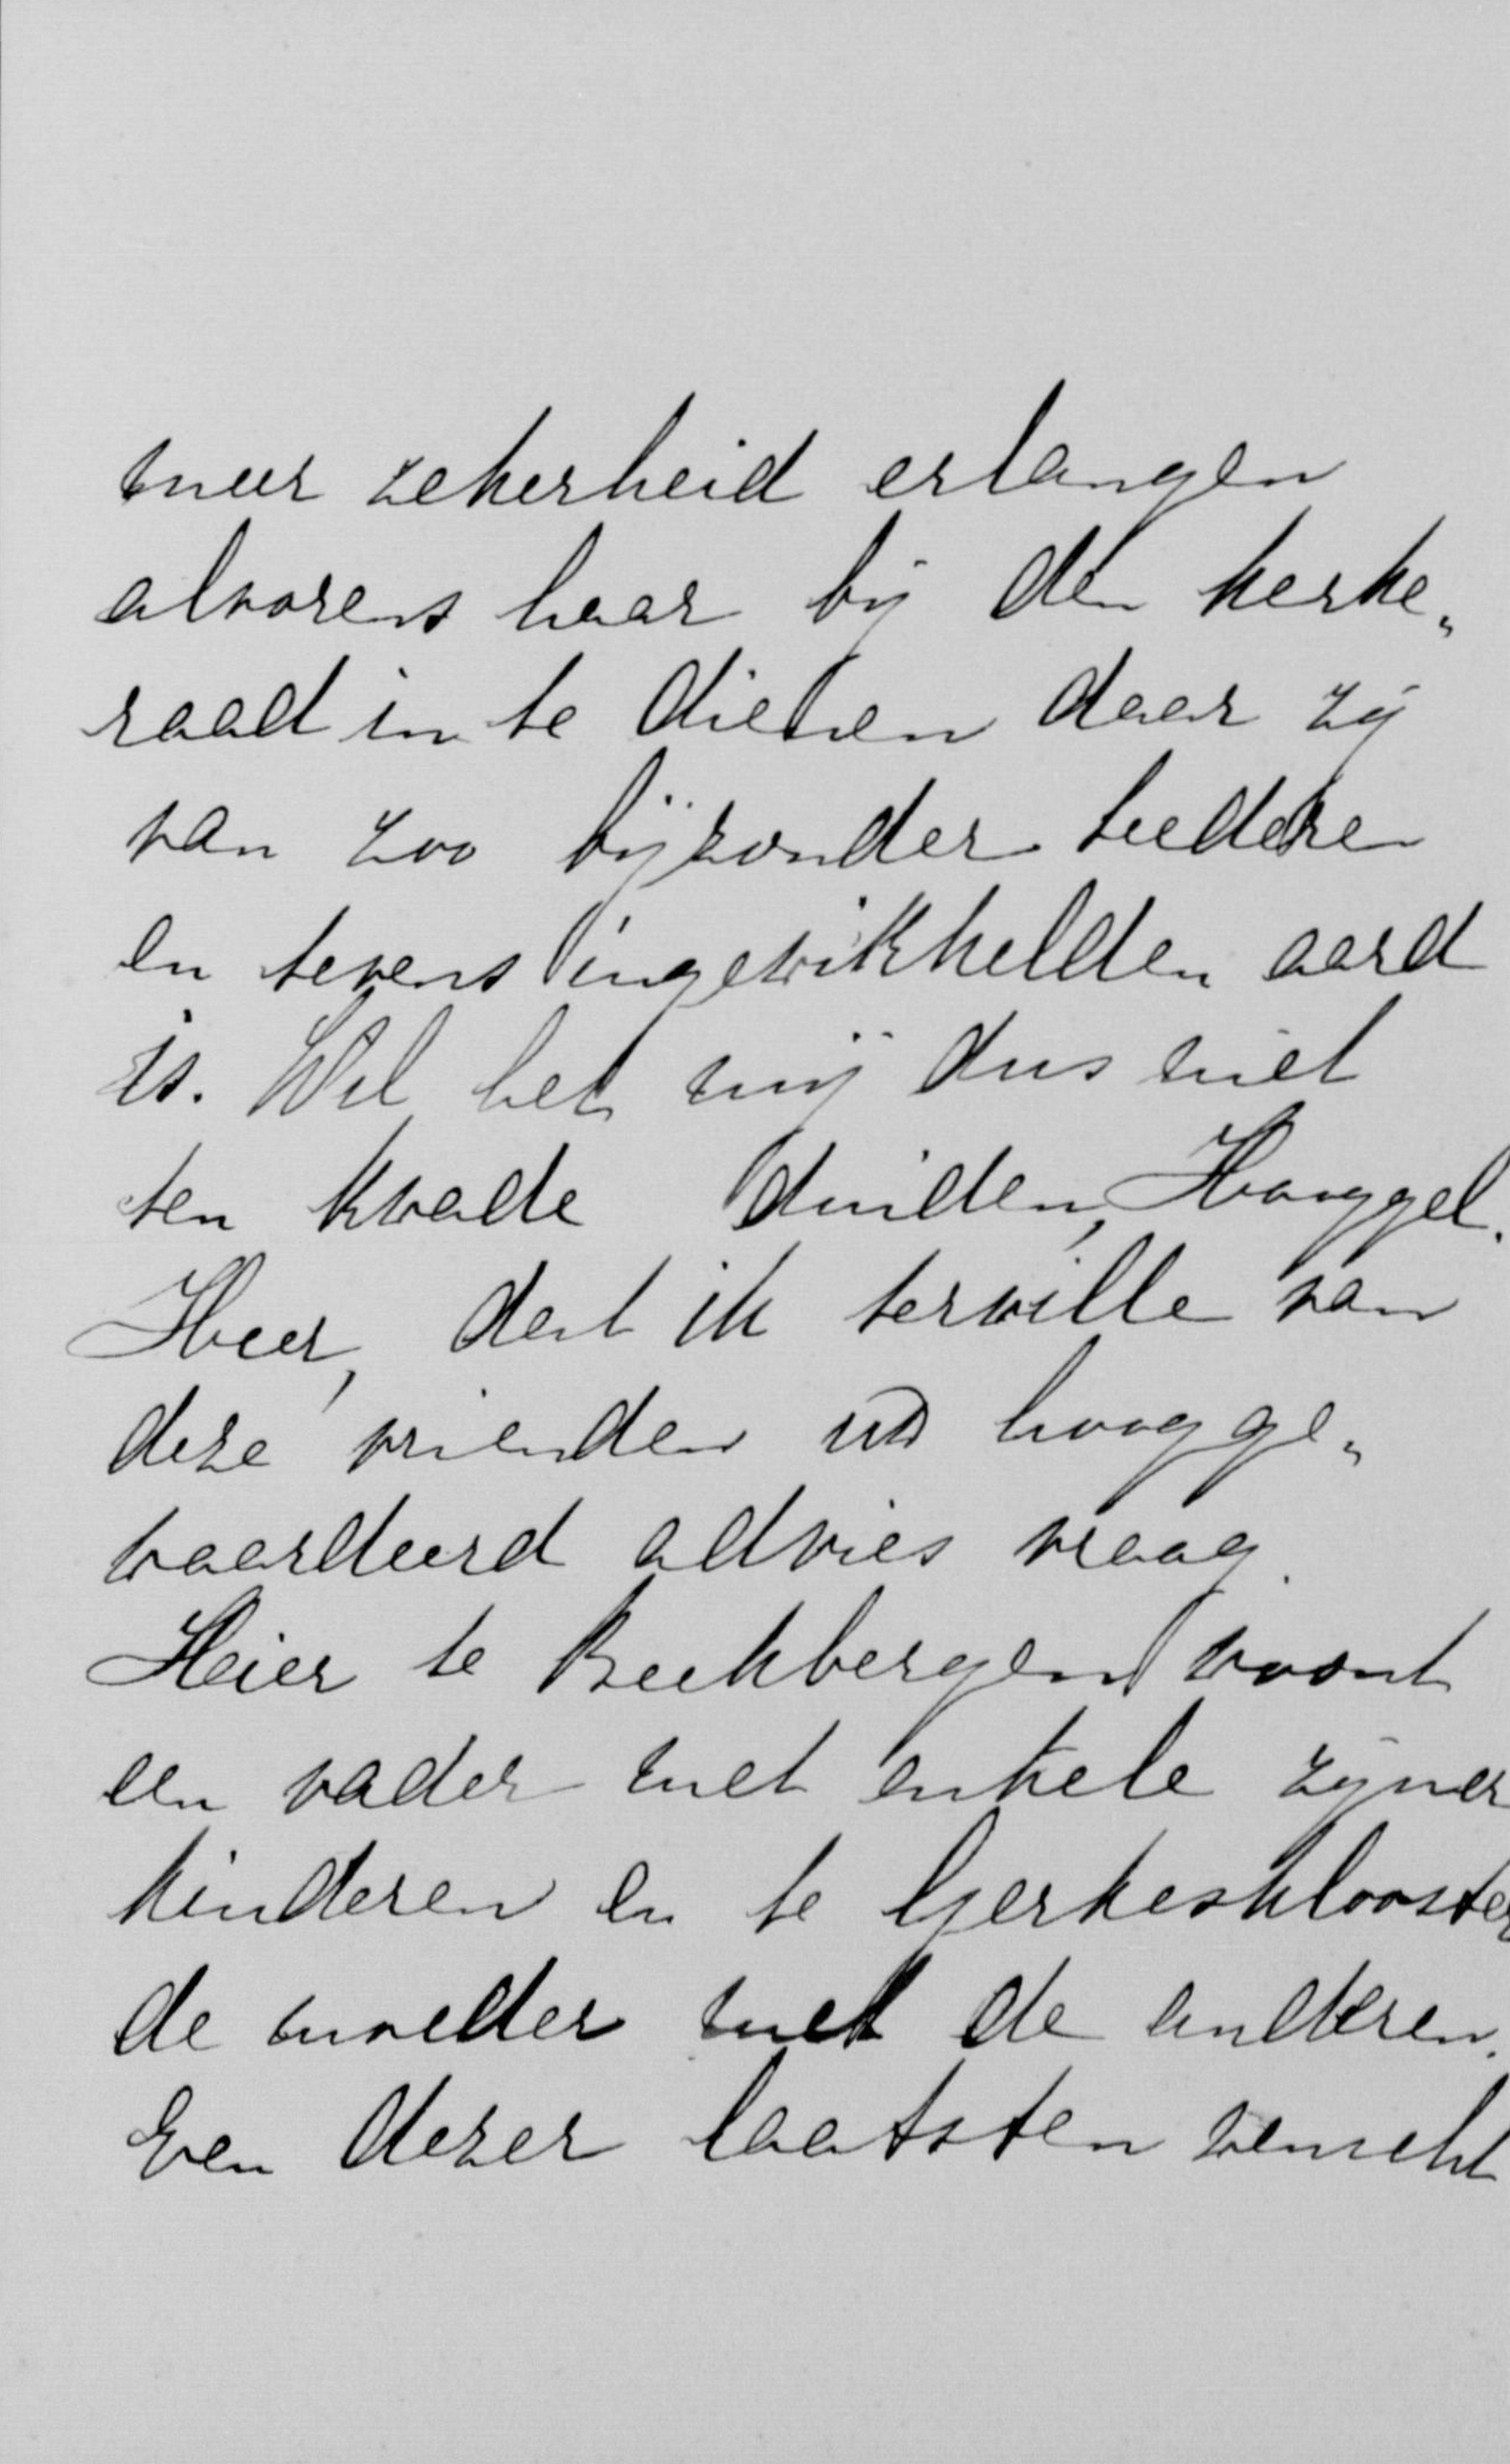 meer zekerheid erlangen
alvorens haar bij den kerke„
raad in te dienen daar zij
van zoo bijzonder teederen
en tevens ingewikkelden aard
is. Wil het mij dus niet
ten kwade duiden, Hooggel.
Heer, dat ik terwille van
deze vrienden uw hoogge„
waardeerd advies vraag.
Hier te Beekbergen woont
een vader met enkele zijner
kinderen en te Gerkesklooster
de moeder met de anderen.
Een dezer laatsten wenscht